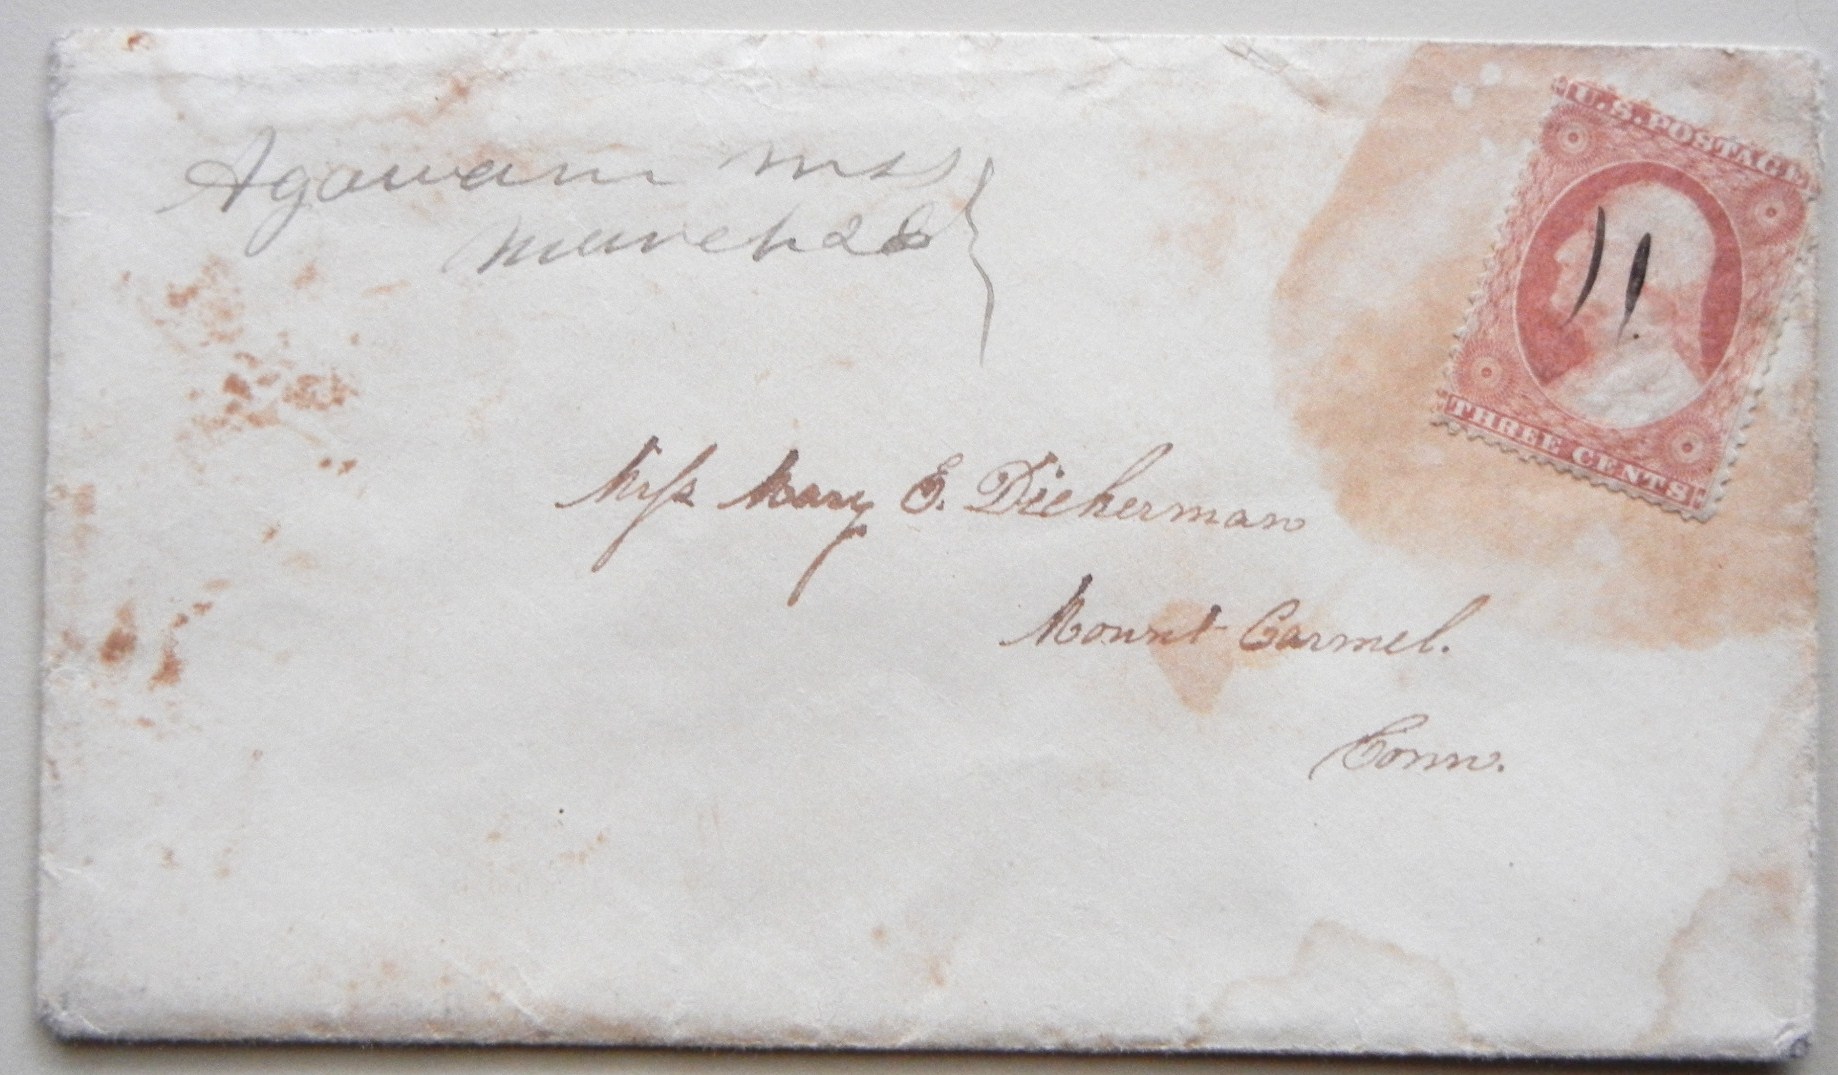 Agawam Mss
March 28
U.S. POSTAGE
THREE CENTS
Miss Mary E. Dickerman
Mount Carmel.
Conn.